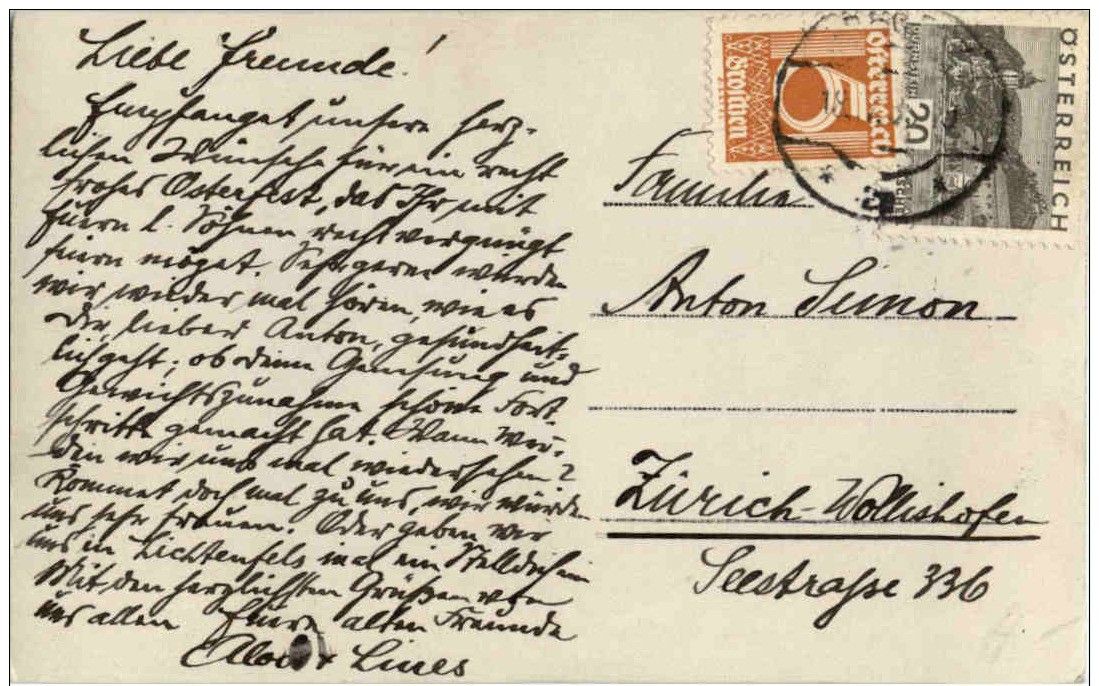 Liebe Freunde!
Empfanget unsere herz-
lichen Wünsche für ein recht
frohes Osterfest, das Ihr mit
Euern l. Söhnen recht vergnügt
feiern möget. Sehr gerne würden
wir wieder mal hören, wie es
Dir, lieber Anton, gesundheit-
lich geht; ob deine Genesung und
Gewichtszunahme schöne Fort
schritte gemacht hat. Wann wer-
den wir uns mal wiedersehen?
Kommet doch mal zu uns, wir würden
uns sehr freuen. Oder geben wir
uns in Lichtenfels mal ein Stelldichein
Mit den herzlichsten Grüßen von
uns allen Eure alten Freunde
Alois + Lines
Österreich
5
Groschen
ÖSTERREICH
20
Familie
Anton Simon
Zürich-Wollishofen
Seestraße 336